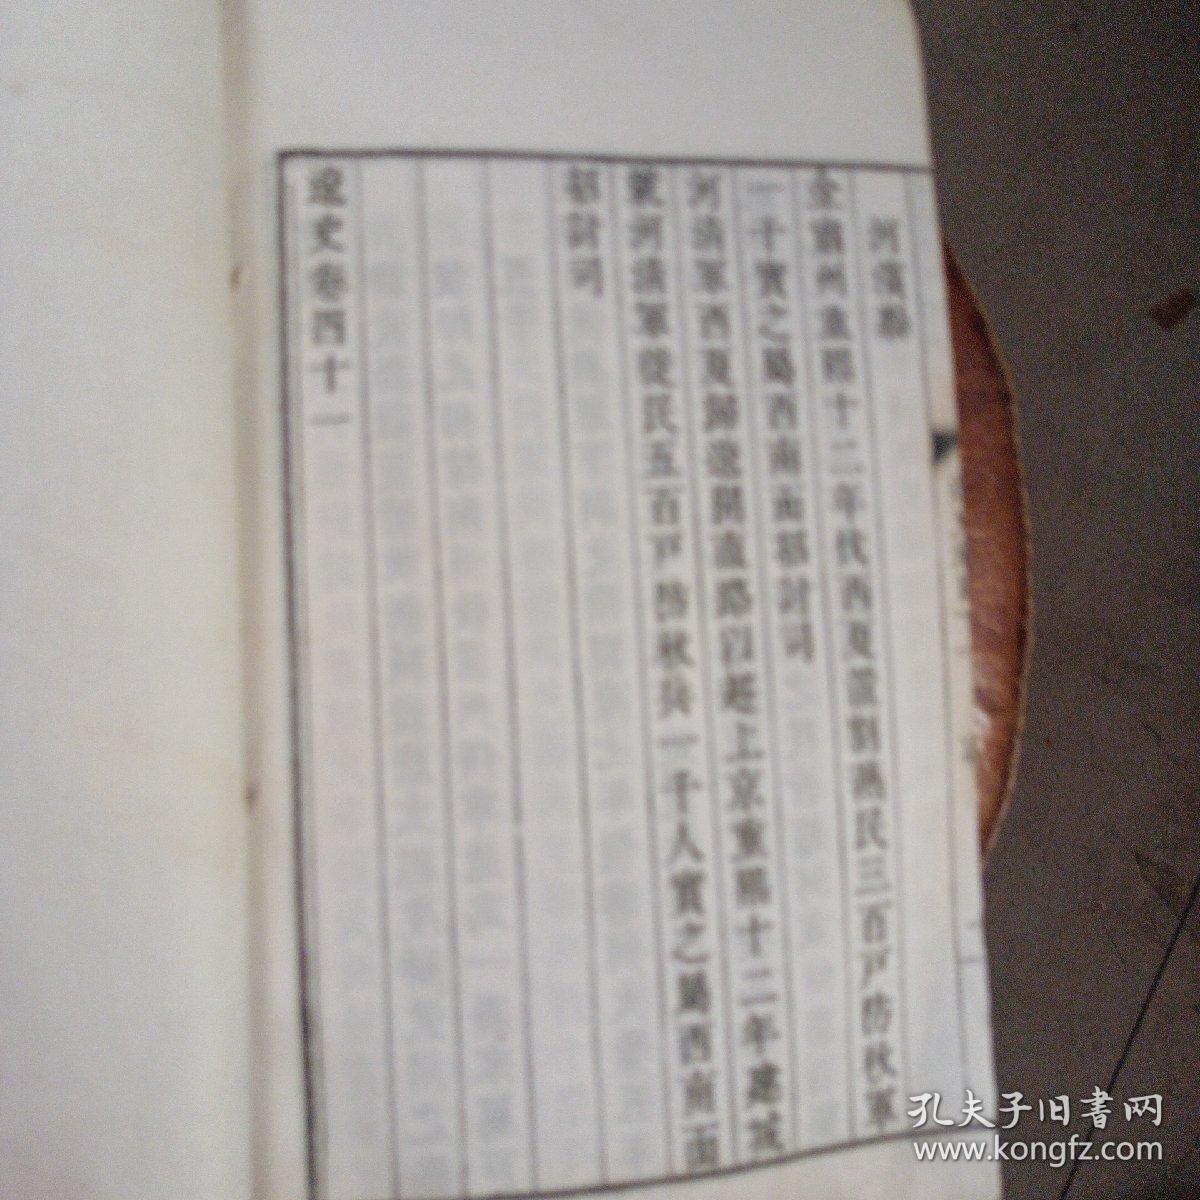 河濱縣
金肅州重熙十二年伐西夏置割燕民三百戶防秋軍
一千實之屬西南面招討司
河清軍西夏歸遼開直路以趨上京重熙十二年建城
號河清軍徙民五百戶防秋兵一千人實之屬西南面
招討司
遼史卷四十一
孔夫子旧书网
www.kongfz.com